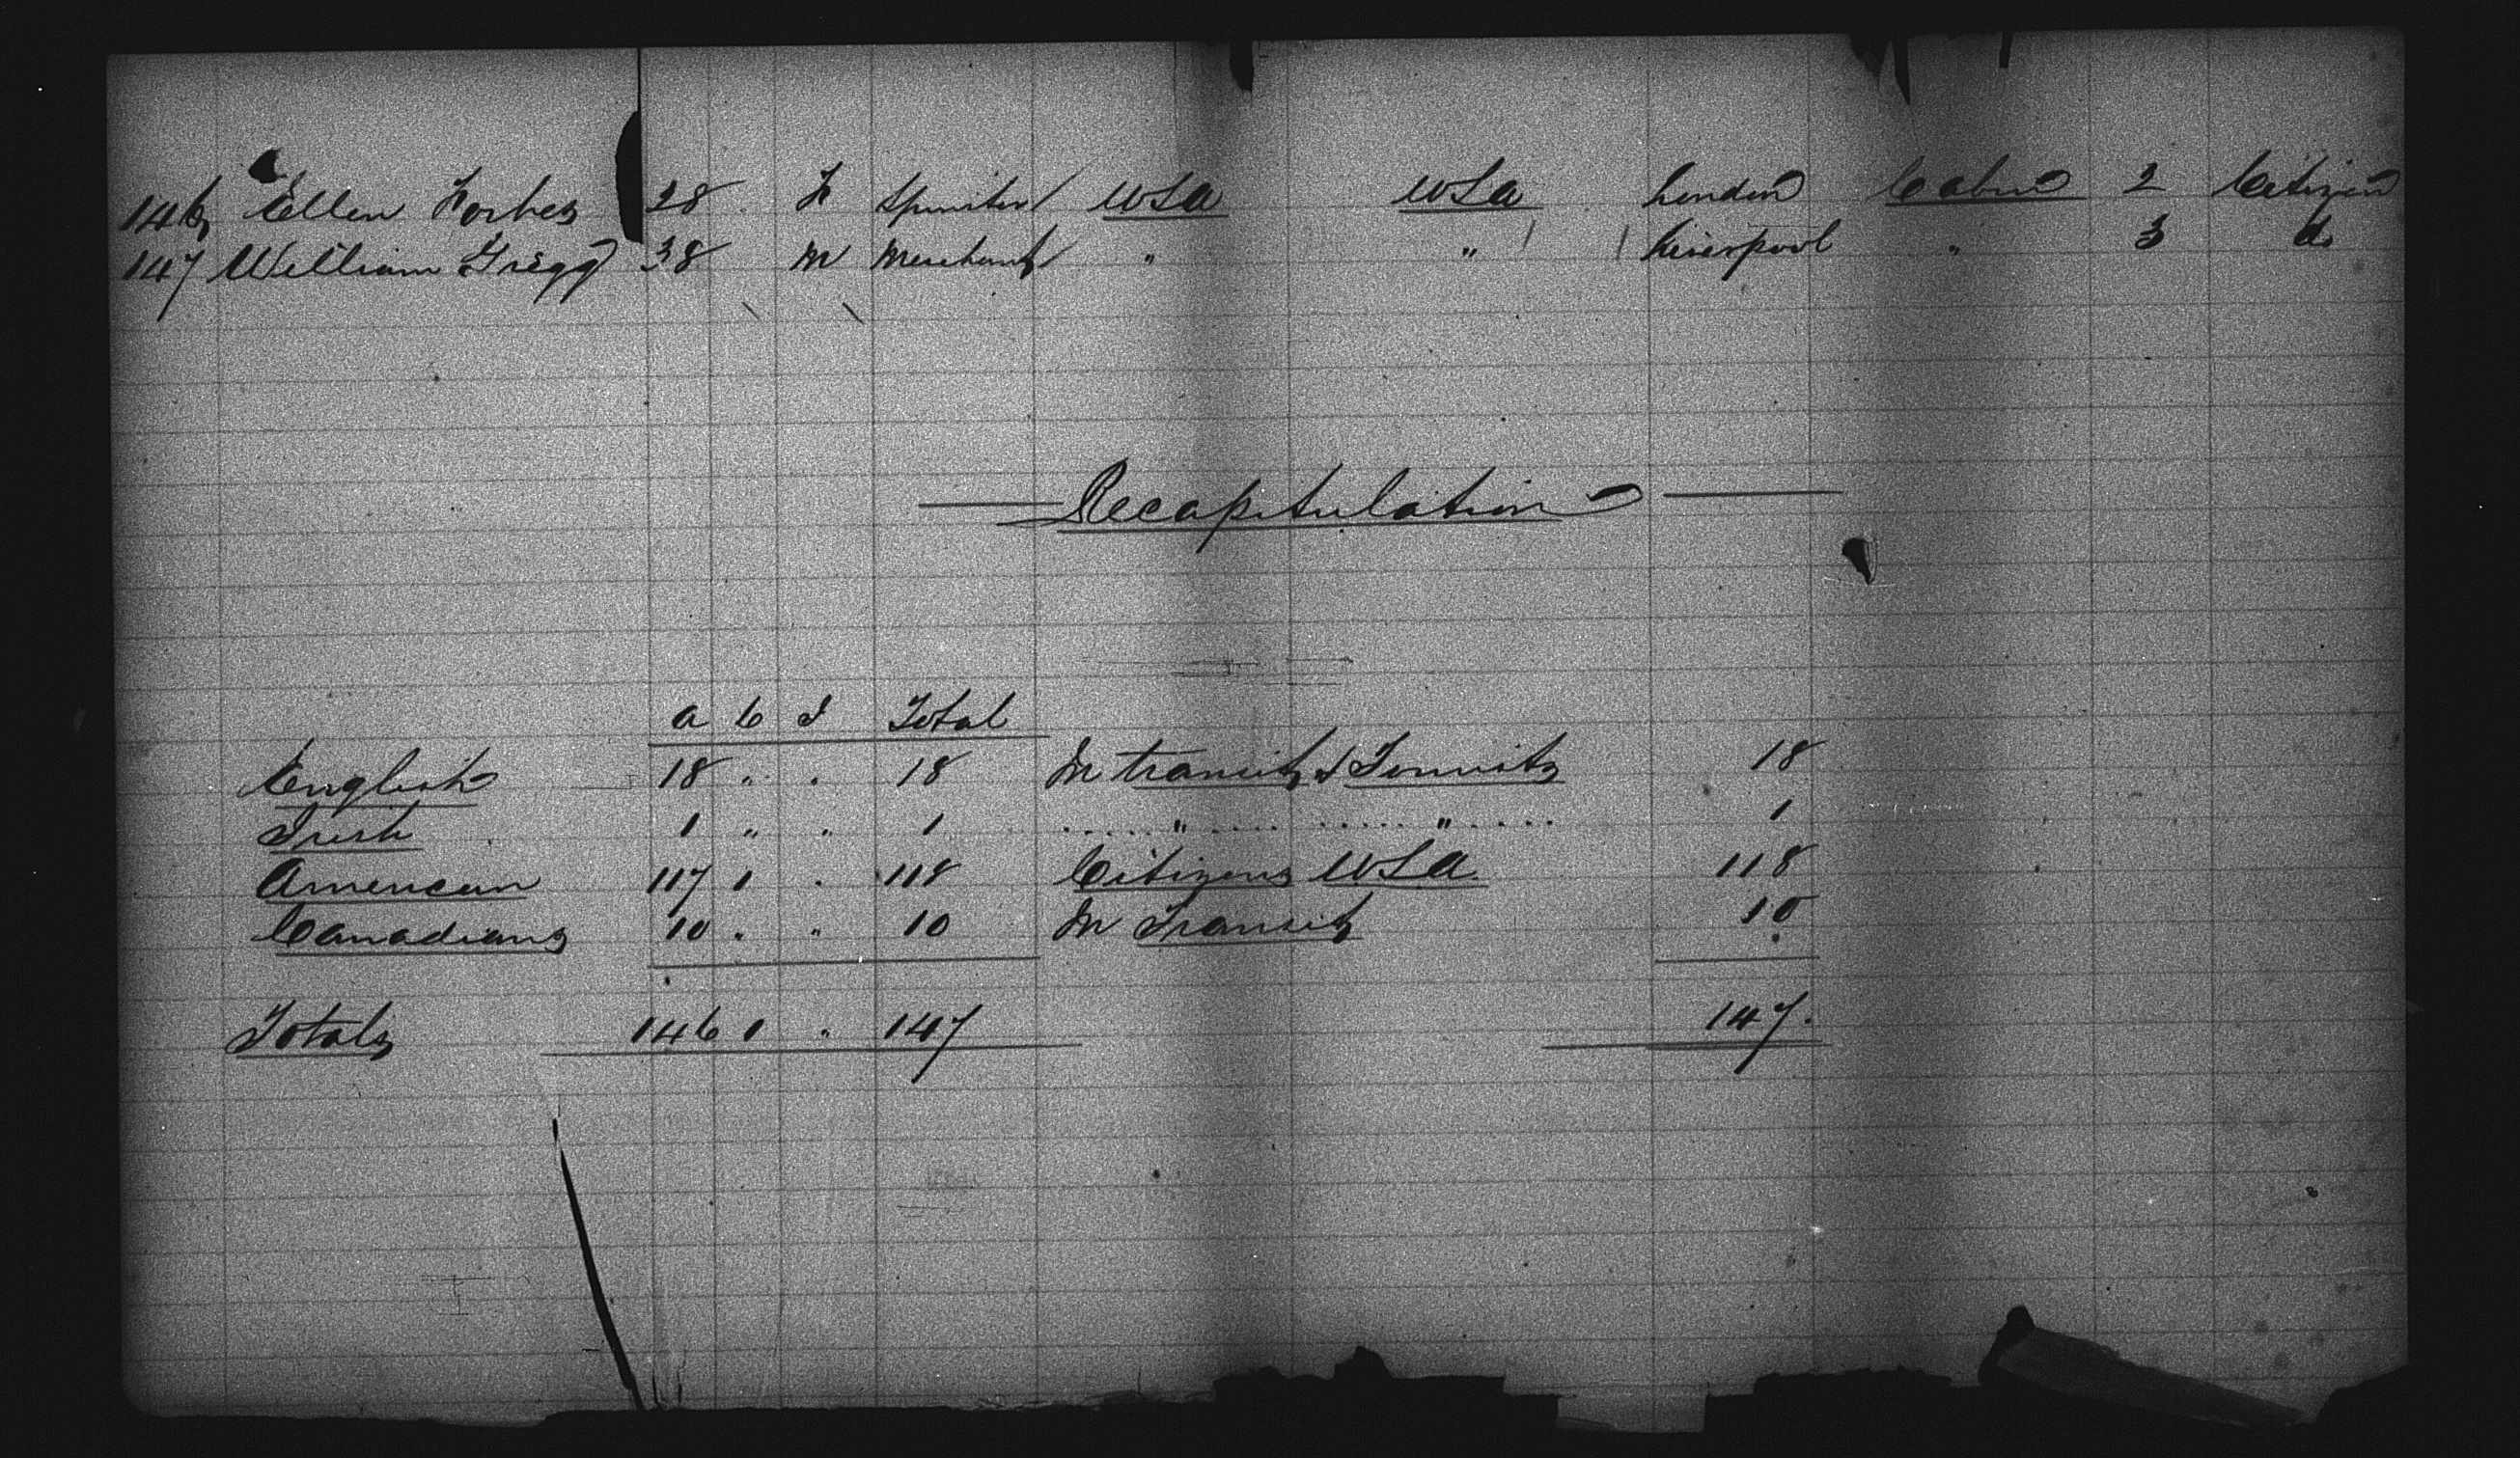 146 Ellen Forbes 28 F Spinster USA USA London Cabin 2 Citizen
147 William Gregg 38 M Merchant " " Liverpool " 3 do
Recapitulation
a C I Total
English 18 " " 18 In transit & Tourists 18
Irish 1 " " 1 " " 1
American 117 1 " 118 Citizens USA 118
Canadians 10 " " 10 In Transit 10
Totals 146 1 " 147 147.